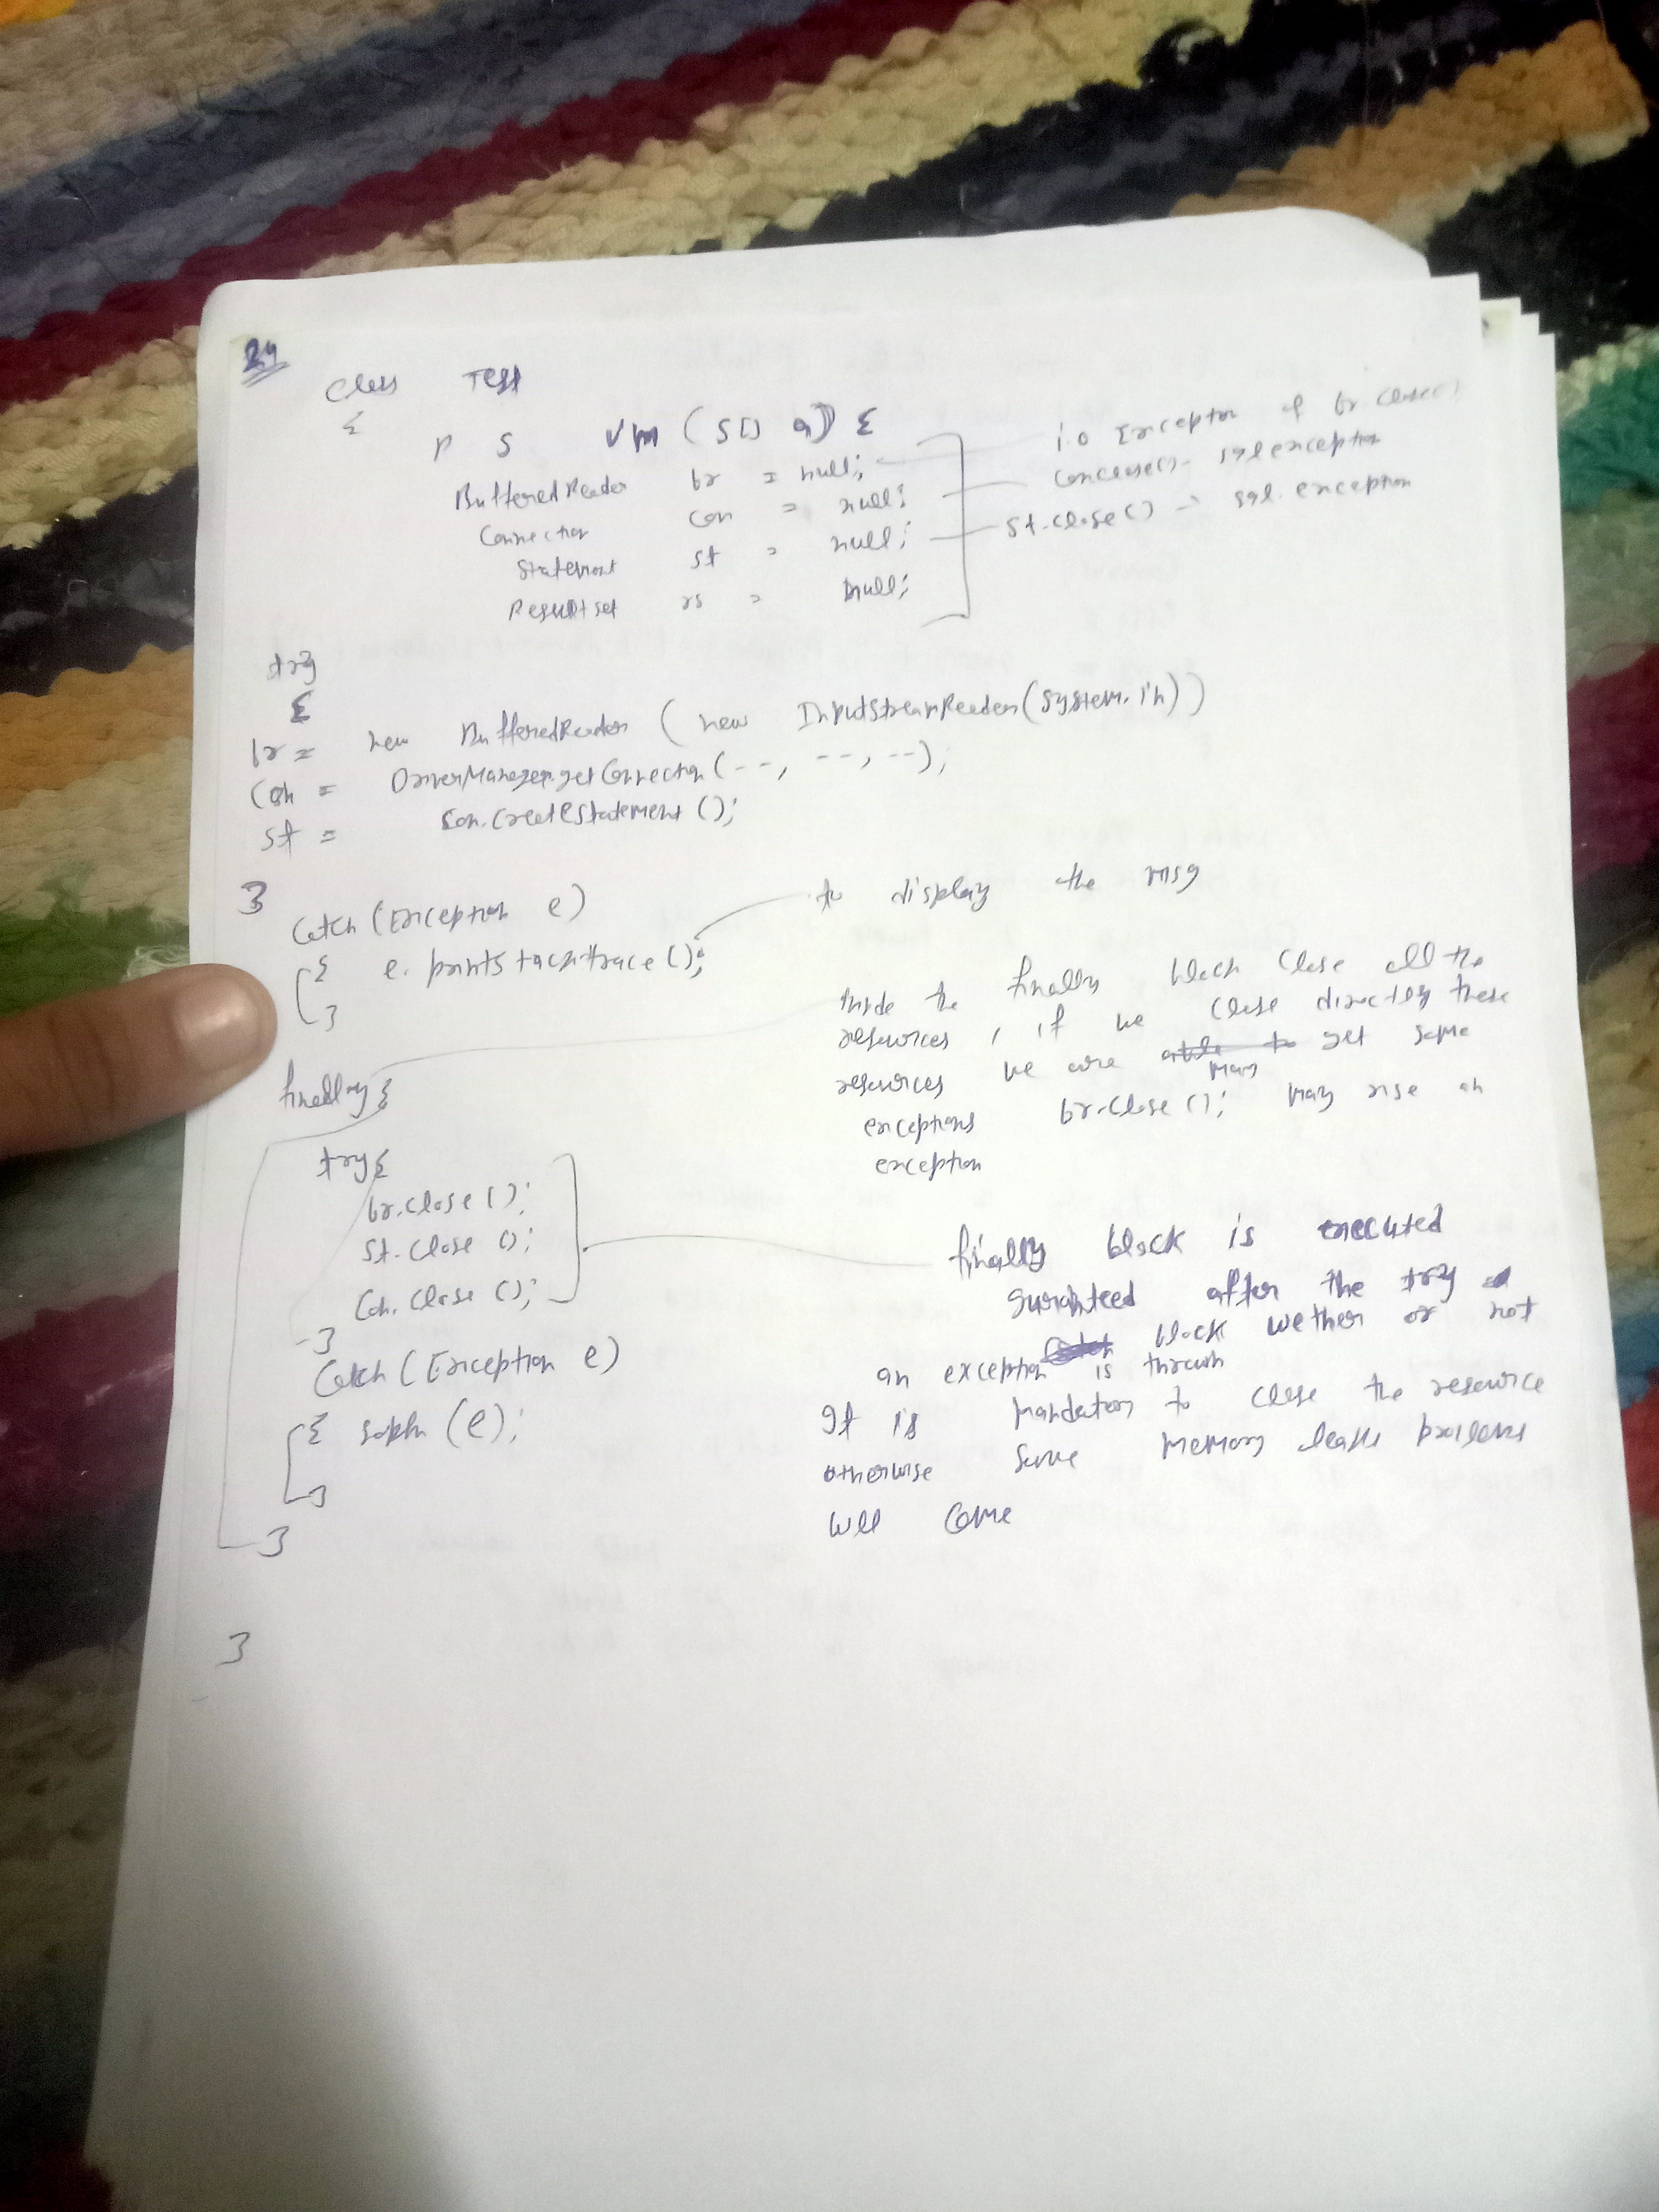 24
Class Test
{
P S Vm (S[] a) {
BufferedReader br = null;
Connection con = null;
Statement st = null;
Resultset rs = null;
i.o Exception of br.close()
con.close() - sql exception
St.close() - sql. exception
try
{
br = new BufferedReader ( new InputStreamReader (System.in))
Con = DriverManager.getConnection (--, --, --);
st = con.CreateStatement ();
}
Catch (Exception e)
{ e. printstacktrace ();
}
to display the msg
finally {
Inside the finally block close all the
resources, if we close directly these
resources we are may get some
exceptions br.close (); may rise an
exception
try {
br.close ();
St. close ();
Con. close ();
}
Catch (Exception e)
{ sopln (e);
}
}
}
finally block is executed
guranteed after the try
block wether or not
an exception is thrown
It is mandatory to close the resource
otherwise some memory leaks problems
will come